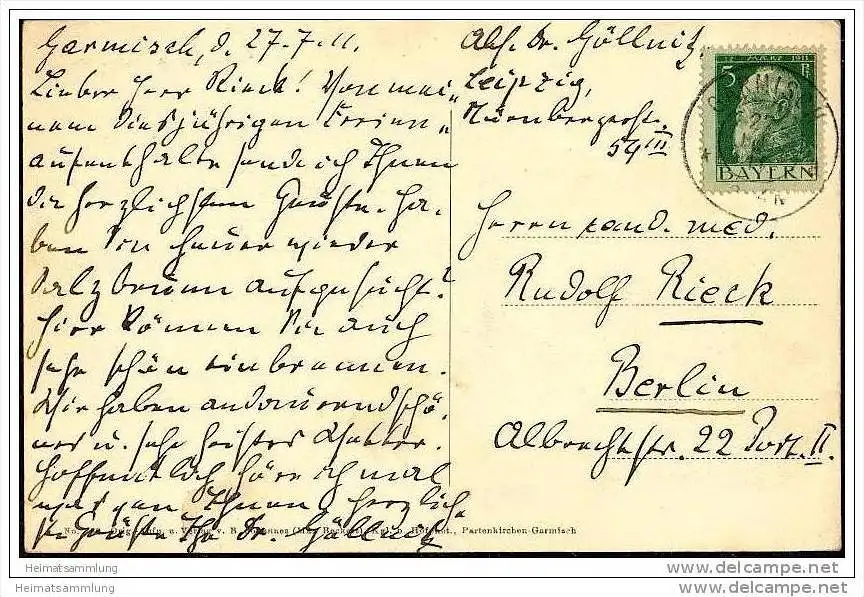 Garmisch, d. 27.7.11.
Lieber Herr Rieck! Von mei-
nem diesjährigen Ferien-
aufenthalte sende ich Ihnen
die herzlichsten Grüße. Ha-
ben Sie heuer wieder
Salzbrunn aufgesucht?
Hier können Sie auch
sehr schön einbrennen.
Wir haben andauernd schö-
nes u. sehr heißes Wetter.
Hoffentlich höre ich mal
was von Ihnen, herzlich-
ste Grüße Ihr Dr. Göllnitz
Abs. Dr. Göllnitz,
Leipzig,
Nürnbergerstr.
54 II
5 MÄRZ 1911 Pf
BAYERN
GARMISCH
Herrn cand. med.
Rudolf Rieck
Berlin
Albrechtstr. 22 Port. II.
No. u. Verlag v. B. Johannes Partenkirchen-Garmisch
Heimatsammlung
Heimatsammlung
www.delcampe.net